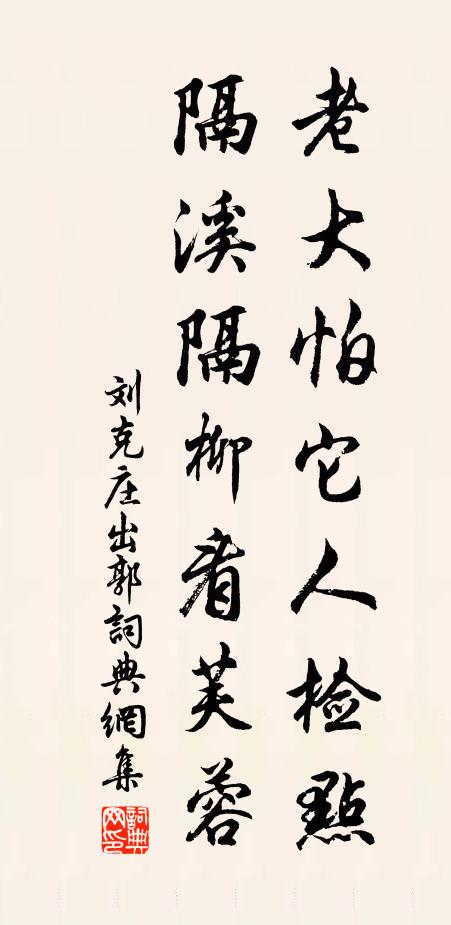 老大怕它人检點
隔溪隔柳看芙蓉
刘克庄出郭詞典網集
詞典網印